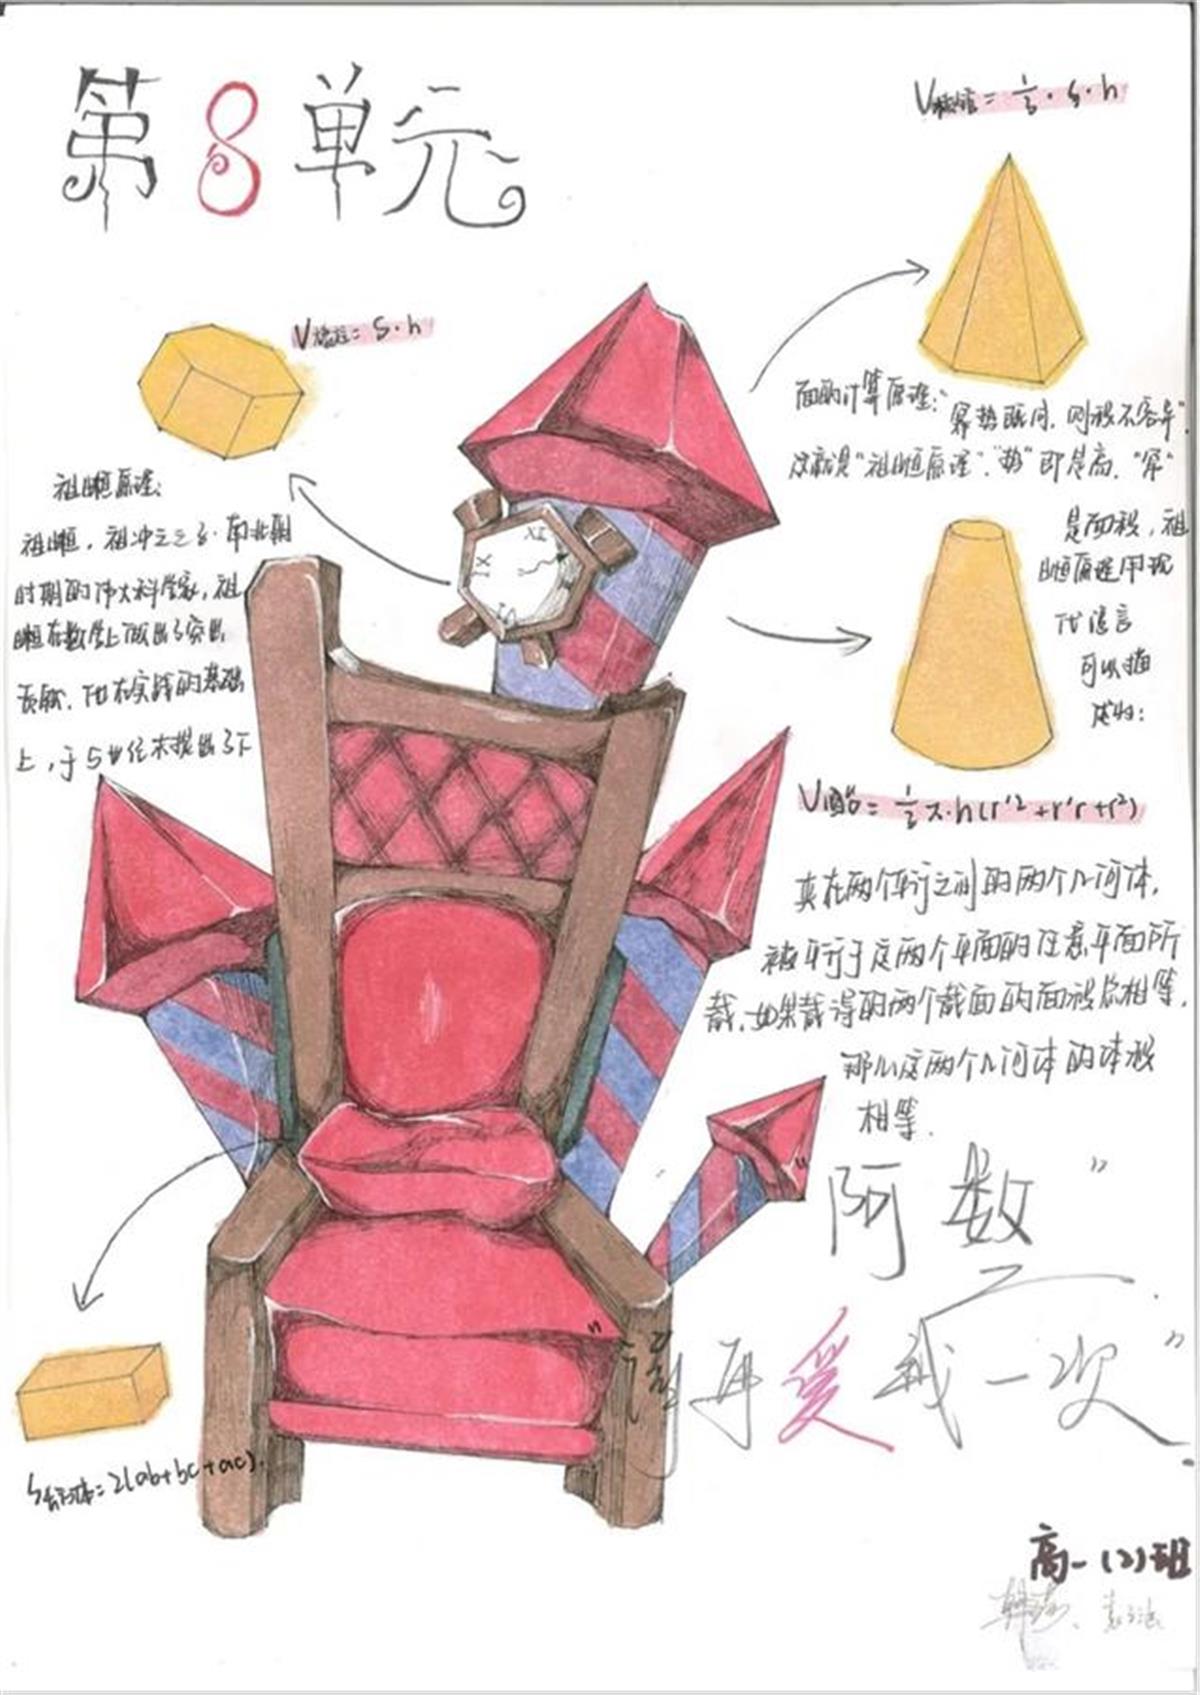 第8单元
V棱锥=⅓·S·h
V棱柱=S·h
面的计算原理:"幂势既同,则积不容异".
这就是"祖暅原理"."势"即是高,"幂"
是面积,祖
暅原理用现
代语言
可以描
述为:
祖暅原理:
祖暅,祖冲之之子.南北朝
时期的伟大科学家,祖
暅在数学上做出了突出
贡献.他在实践的基础
上,于5世纪末提出了下
V圆台=⅓π·h(r'²+r'r+r²)
夹在两个平行之间的两个几何体,
被平行于这两个平面的任意平面所
截,如果截得的两个截面的面积总相等,
那么这两个几何体的体积
相等.
"阿数"
"请再爱我一次"
S长方体=2(ab+bc+ac).
高一(2)班